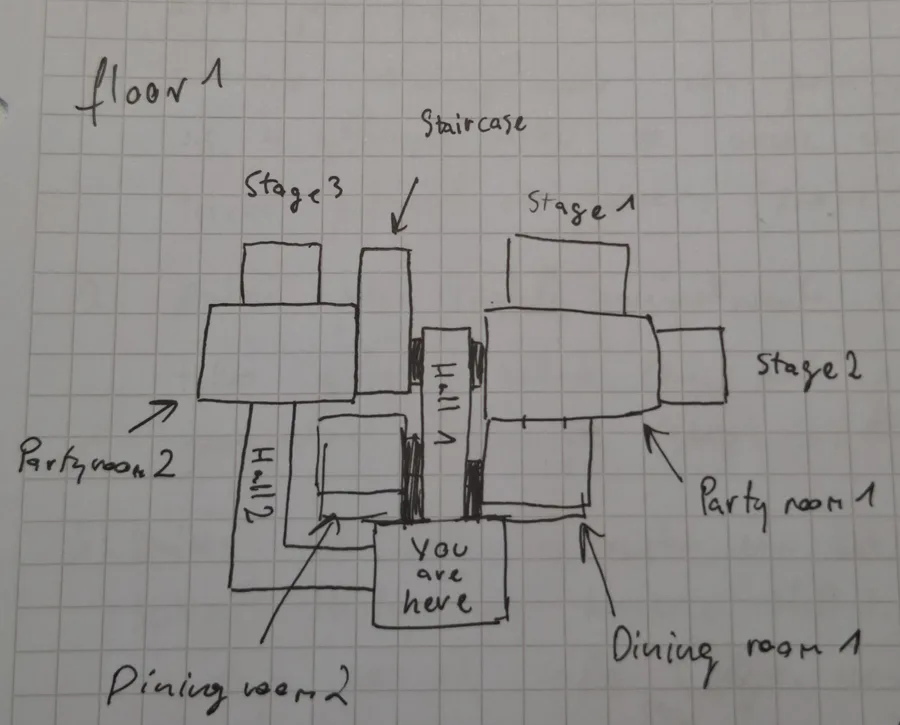 floor 1
Staircase
Stage 3
Stage 1
Stage 2
Hall 1
Party room 2
Hall 2
Party room 1
You
are
here
Dining room 1
Dining room 2